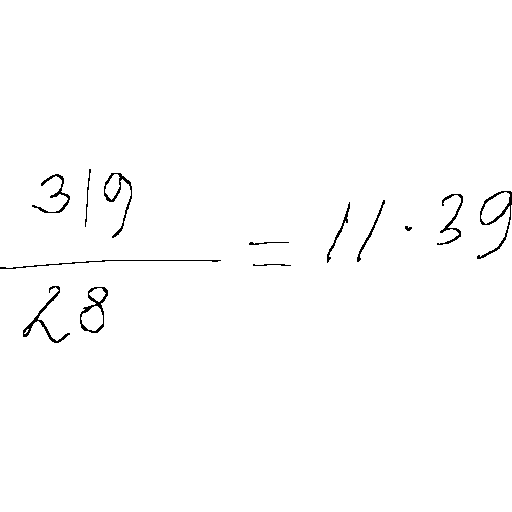 319
28
= 11.39